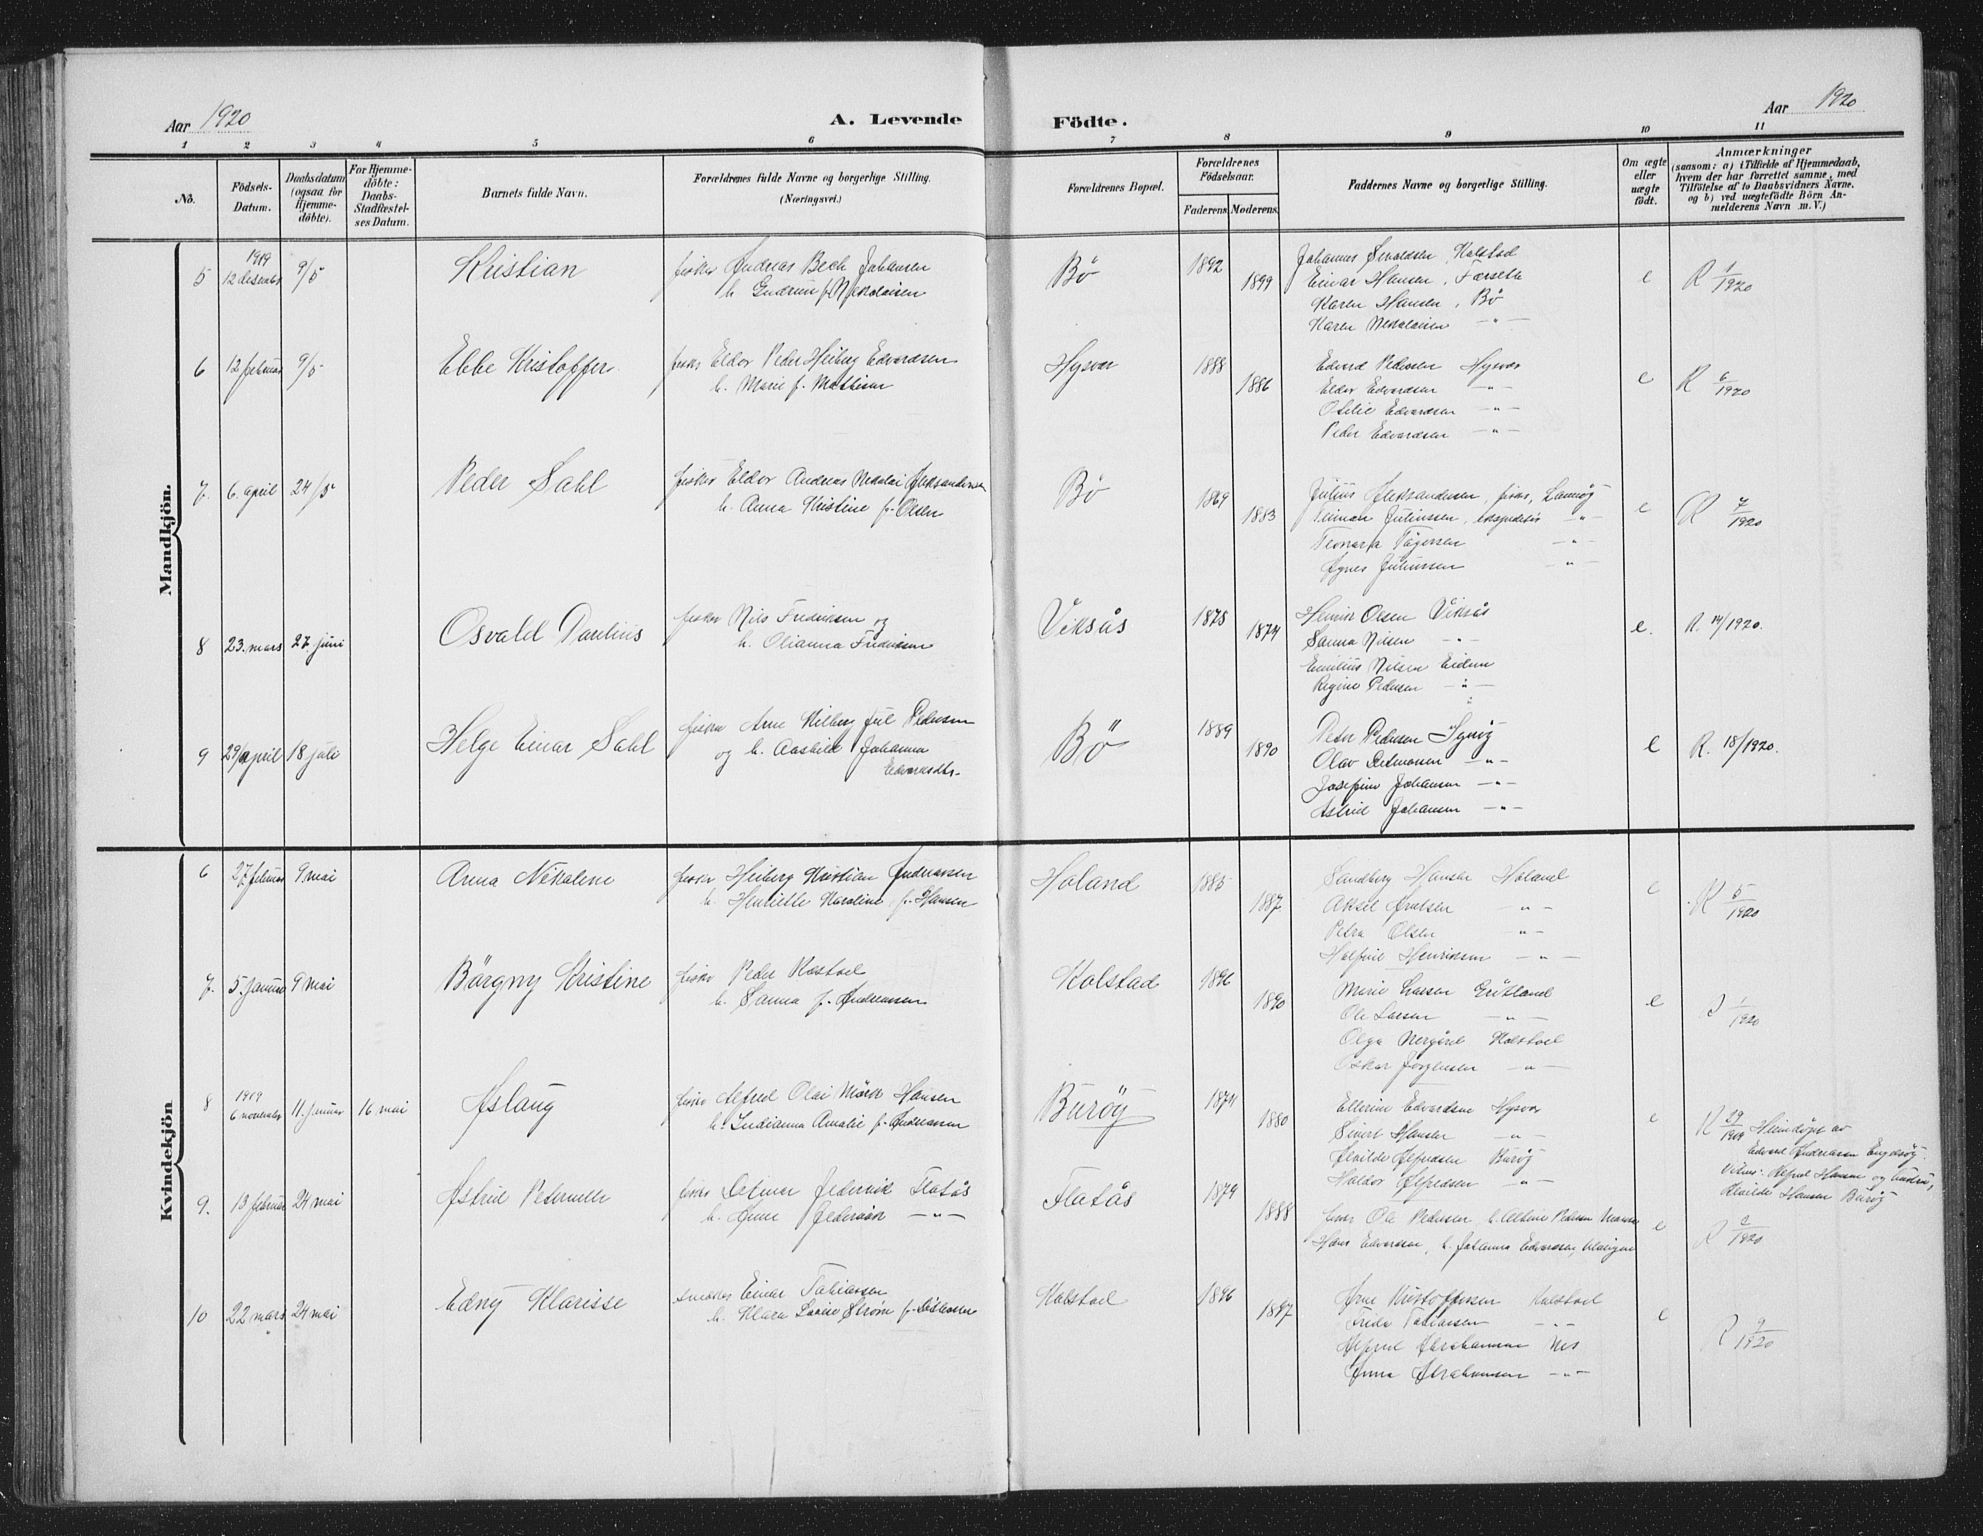 Aar 1920
A. Levende
Födte.
Aar 1920
1 2 3 4 5 6 7 8 9 10 11
No.
Födsels-Datum.
Daabsdatum (ogsaa for Hjemmedöbte).
For Hjemmedöbte: Daabs-Stadfæstelses Datum.
Barnets fulde Navn.
Forældrenes fulde Navne og borgerlige Stilling.
(Næringsvei.)
Forældrenes Bopæl.
Forældrenes Födselsaar.
Faderens. Moderens.
Faddernes Navne og borgerlige Stilling.
Om ægte eller uægte födt.
Anmærkninger
(saasom: a) i Tilfælde af Hjemmedaab, hvem der har forrettet samme, med Tilföielse af to Daabsvidners Navne. og b) ved uægtefödte Börn Anmelderens Navn m. V.)
Mandkjön.
5 1919 12 desember 9/5 Kristian fisker Andreas Bech Johansen
h. Gudrun f. Nikolaisen
Bö 1892 1899
Johannes Kolstad
Einar Hansen, Færseth
Karen Hansen, Bö
Karen Nikolaisen -"-
e R 1/1920
6 12 februar 9/5 Ebbe Kristoffer fisker Eldor Peder Heiberg Edvardsen
h. Marie f. Mathisen
Hysvær 1888 1886
Edvard Pedersen Hysvær
Eldor Edvardsen -"-
Otelie Edvardsen -"-
Peder Edvardsen -"-
e R 6/1920
7. 6. april 24/5 Peder Dahl fisker Eldor Andreas Nikolai Aleksandersen
h. Anna Kristine f. Olsen
Bö 1869 1883
Julius Aleksandersen, fisker,
Julinssen, -"-
-"-
Agnes Juliussen -"-
e R 7/1920
8 23. mars 27. juni Osvald Paulius fisker Nils Fredriksen og
h. Olianna Fredriksen
Viksås 1875 1874
Henrik Olsen Viksås
Sanna Nilsen -"-
Emilius Nilsen Eidem
Regine Pedersen -"-
e. R. 14/1920.
9 29/april 18 juli Helge Einar Dahl fisker Arne Hilberg Jul Pedersen
og h. Aashild Johanna
Edvardsdtr.
Bö 1889 1890
Peter Pedersen
Olav Detmersen -"-
Josefine Johansen -"-
Astrid Johansen -"-
e R. 18/1920.
Kvindekjön
6 27 februar 9 mai Anna Nikoline fisker Heiberg Kristian Andreassen
h. Henriette Karoline f. Hansen
Holand 1885 1887
Sandberg Hansen Holand
Aksel -"-
Petra Olsen -"-
Henriksen -"-
e R 5/1920
7. 5. januar 9 mai Börgny Kristine fisker Peder Kolstad
h. Sanna f. Andreassen
Kolstad 1896 1890
Marie Larsen Gritland
Ole Larsen -"-
Olga Kolstad
Oskar Jörgensen -"-
e 1/1920
8 1919 6 november 11. januar 16 mai Aslaug fisker Alfred Olai Mörk Hansen
h. Indianna Amalie f. Andreassen
Buröy 1874 1880
Ellerine Edvardsen Hysvær
Sivert Hansen -"-
Alvilde Alfredsen Buröy
Haldor Alfredsen -"-
e R 29/1919 Hjemdöpt av
Edvard Andreassen
Vitner: Alfred Hansen og hustru,
Alvilde Hansen Buröy
9. 13 februar 24 mai Astrid Peternelle fisker Detmer Jedervik Flatås
h. Anne Jedervik -"-
Flatås 1879 1888
fisker Ole Pedersen, h. Albine Pedersen
Hans Edvardsen, h. Johanna Edvardsen,
e R 2/1920
10 22 mars 24 mai Edny Klarisse snekker Einar Tobiassen
h. Klara Lovise Ström f.
Kolstad 1896 1897
Arne Kristoffersen Kolstad
Frida Tobiassen -"-
Alfred Abrahamsen Nes
Anna Abrahamsen -"-
e R 9/1920